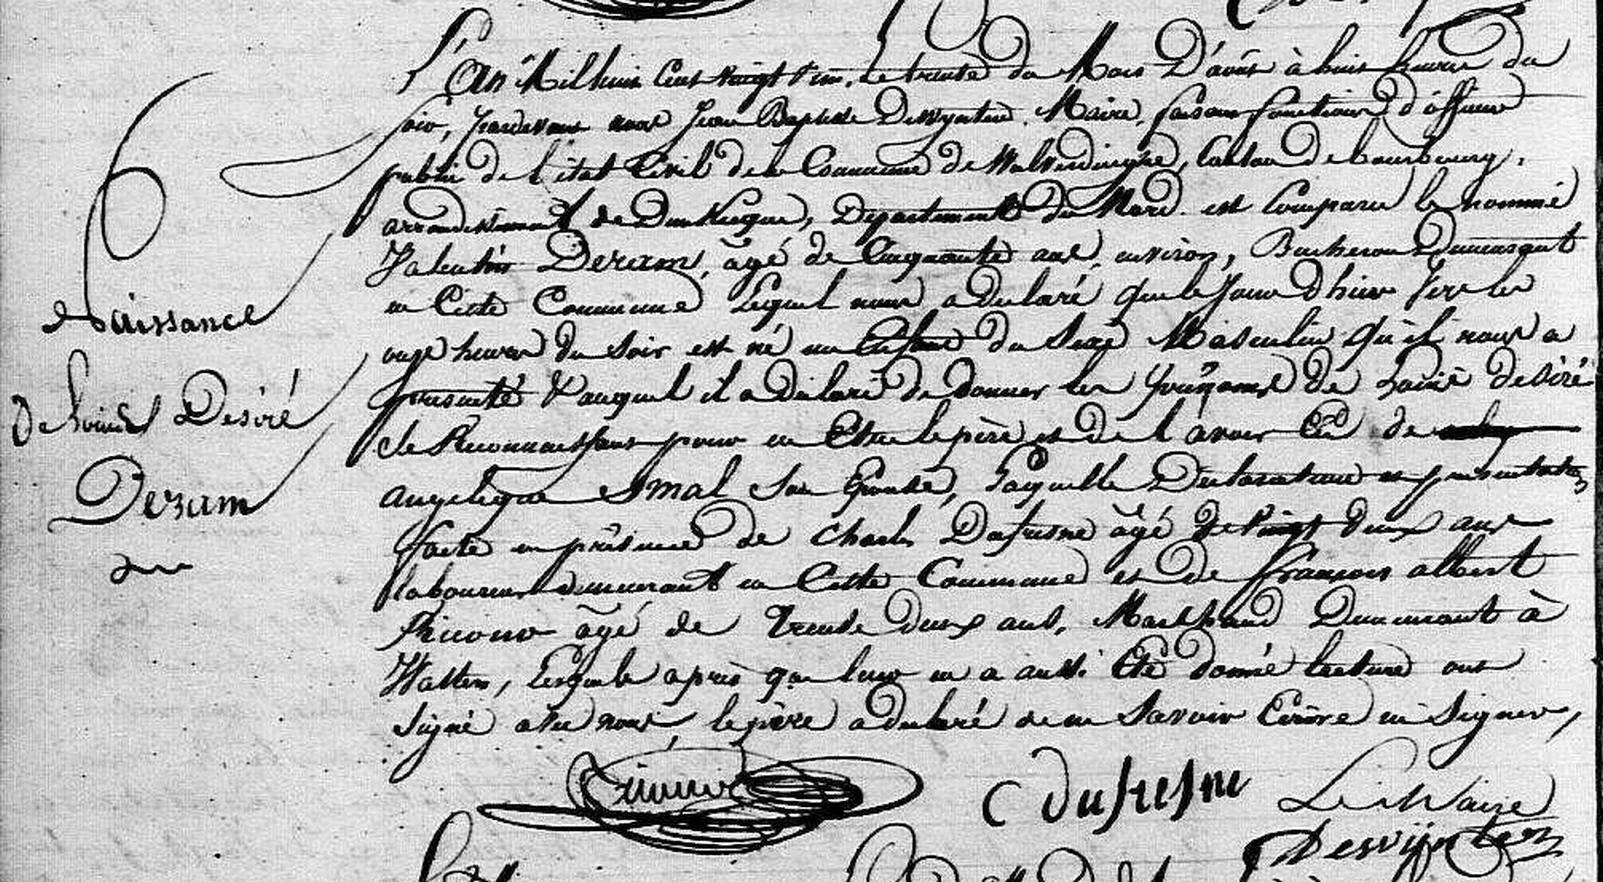 L'an Mil huit Cent vingt un, le trente du Mois D'août à huit heures du
soir, pardevant nous Jean Baptiste Deswynter, Maire, faisant fonctions d'officier
public de l'état Civil de la Commune de Wulverdinghe, Canton de bourbourg,
arrondissement de Dunkerque, Département du Nord. est Comparu le nommé
Valentin Deram, âgé de Cinquante ans, environ, Bucheron Demeurant
en Cette Commune Lequel nous a déclaré que le Jour d'hier Vers les
onze heures du Soir est né un Enfant du Sexe Masculin qu'il nous a
présenté & auquel il a déclaré de donner les prénoms de Louis désiré
le Reconnaissant pour en Etre le père et de l'avoir Eû de
angélique Smal Son Epouse, Laquelle Déclaration et présentation
faite en présence de Charles Dufresne âgé de vingt deux ans
laboureur demeurant en Cette Commune et de François albert
âgé de trente deux ans, Marchand Demeurant à
Watten, Lesquels après que leur en a aussi Eté donné lecture ont
signé avec nous, le père a déclaré de ne Savoir Ecrire ni Signer,
Naissance
De Louis Desiré
Deram
C dufresne
Le Maire
Deswijnter